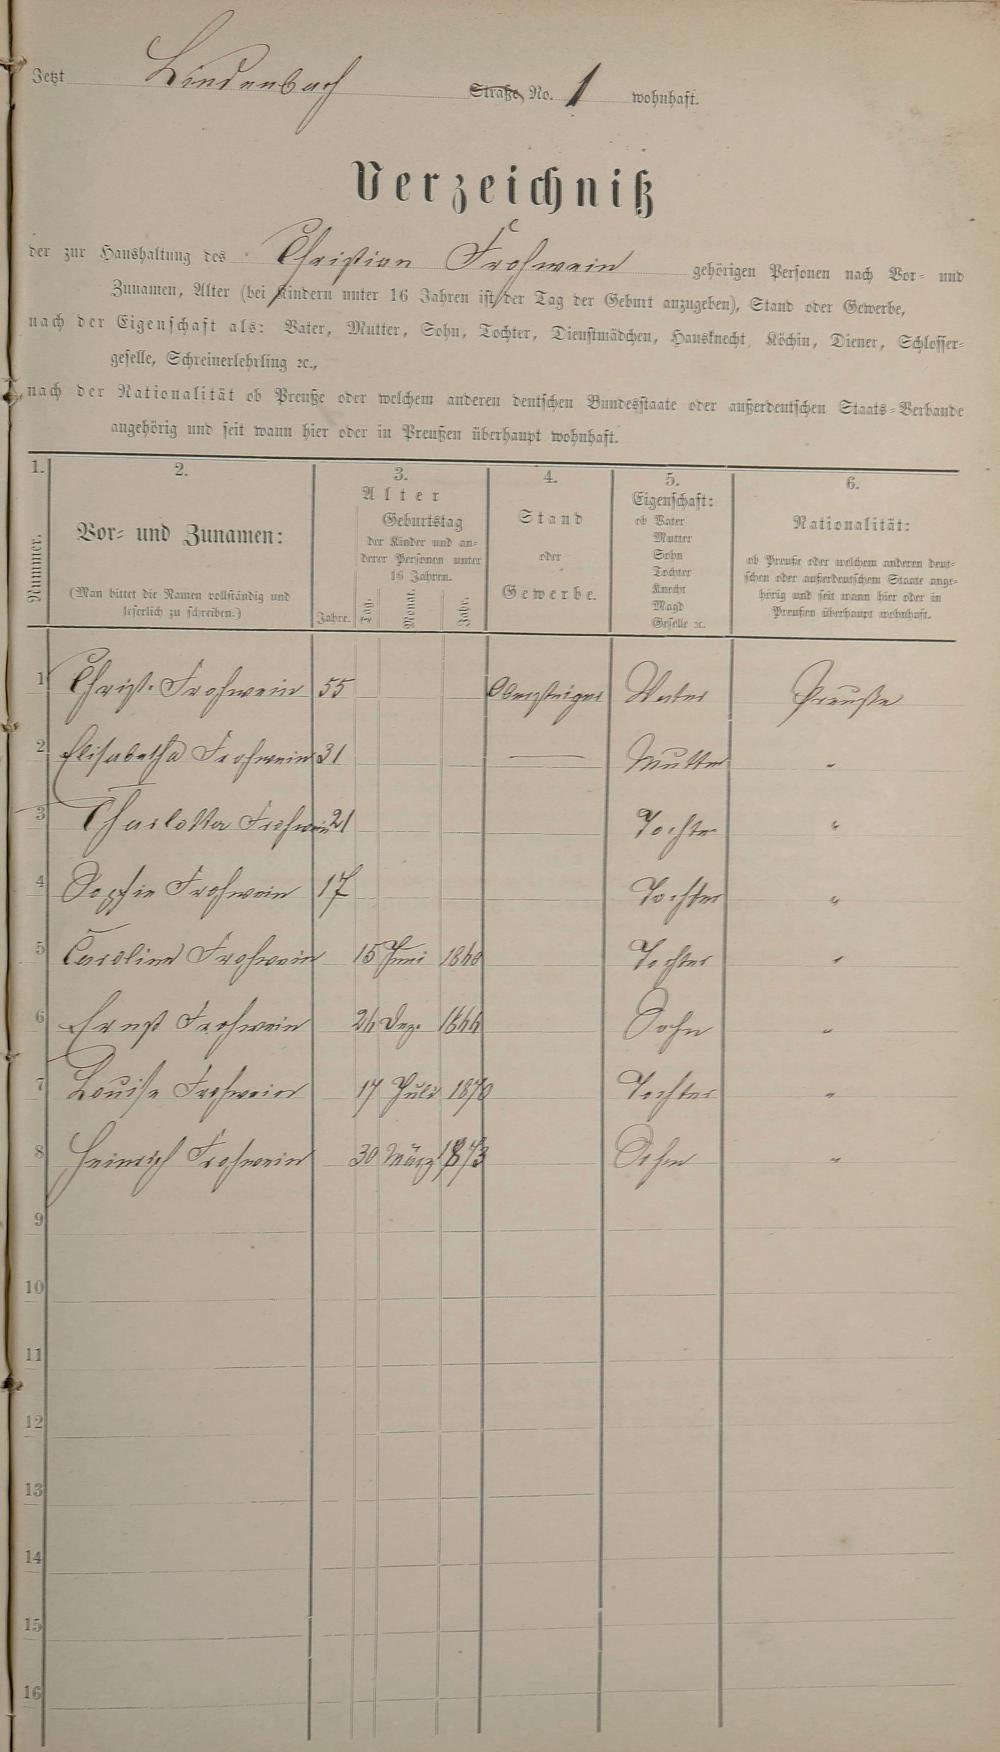 Jetzt Lindenbach Straße No. 1 wohnhaft.
Verzeichniß
der zur Haushaltung des Christian Frohwein gehörigen Personen nach Vor- und
Zunamen, Alter (bei Kindern unter 16 Jahren ist der Tag der Geburt anzugeben), Stand oder Gewerbe,
nach der Eigenschaft als: Vater, Mutter, Sohn, Tochter, Dienstmädchen, Hausknecht, Köchin, Diener, Schlosser-
geselle, Schreinerlehrling ꝛc.,
nach der Nationalität ob Preuße oder welchem anderen deutschen Bundesstaate oder außerdeutschen Staats-Verbande
angehörig und seit wann hier oder in Preußen überhaupt wohnhaft.
1. 2. 3. 4. 5. 6.
Nummer.
Vor- und Zunamen:
(Man bittet die Namen vollständig und
leserlich zu schreiben.)
Alter
Jahre.
Geburtstag
der Kinder und an-
derer Personen unter
16 Jahren.
Tag. Monat. Jahr.
Stand
oder
Gewerbe.
Eigenschaft:
ob Vater
Mutter
Sohn
Tochter
Knecht
Magd
Geselle ꝛc.
Nationalität:
ob Preuße oder welchem anderen deut-
schen oder außerdeutschem Staate ange-
hörig und seit wann hier oder in
Preußen überhaupt wohnhaft.
1 Christ. Frohwein 55 Obersteiger Vater Preuße
2 Elisabetha Frohwein 31 — Mutter "
3 Charlotta Frohwein 21 Tochter "
4 Sophie Frohwein 17 Tochter "
5 Caroline Frohwein 15 Juni Tochter "
6 Ernst Frohwein 24 Dez. Sohn "
7 Louise Frohwein 17 Juli 1870 Tochter "
8 Heinrich Frohwein 30 März 1873 Sohn "
9
10
11
12
13
14
15
16